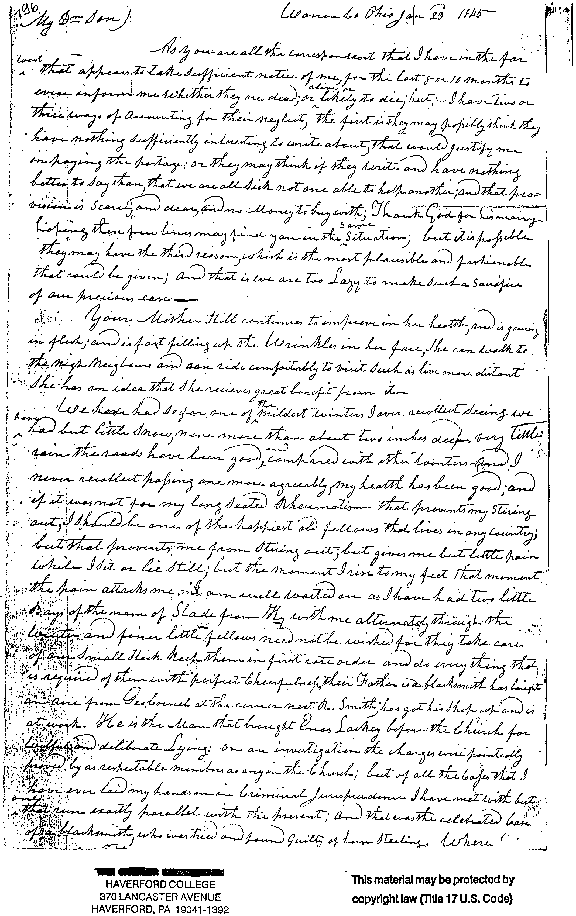 196
My Dear Son) Jan 23 1845
As you are all the correspondent that I have in the far
West
that appears to take sufficient notice of me, for the last 8 or 10 months to
even inform me whether they are dead, or likely to die, but, I have two or
three ways of accounting for their neglect, the first is they may possibly think they
have nothing sufficiently interesting to write about, that would justify me
in paying the postage; or they may think if they write and have nothing
better to say than, that we are all sick not one able to help another, and that pro-
vision is scarce, and dear, and no Money to buy with, Thank God for his mercy
hoping these few lines may find you in the same Situation; but it is possible
they may have the third reason, which is the most plausible and fashionable
that could be given; and that is we are too Lazy to make such a Sacrifice
of our precious ease—
Your Mother Hill continues to improve in her health, and is gaining
in flesh, and is fast filling up the Wrinkles in her face, She can walk to
the nigh Neighbours and can ride comfortably to visit such as live more distant
She has an idea that she recieves great benefit from it
We have had so far one of the mildest winters I ever recollect seeing we
have
had but little snow, none more than about two inches deep very little
rain the roads have been good, compared with other winters and I
never recollect passing one more agreeably, my health has been good, and
if it was not for my long seated Rheumatism that prevents my stiring
out, I should be one of the happiest old fellows that lives in any country,
but that prevents me from stiring out; but gives me but little pain
while I sit or lie still, but the moment I rise to my feet that moment
the pain attacks me. I am well waited on as I have had two little
Boys of the name of Slade from Ky with me alternately through the
Winter and finer little fellows need not be wished for they take care
of our Small Stock keep them in first rate order and do everything that
is required of them with perfect Cheerfulness, their Father is a blacksmith has bought
an acre from at the corner next R. Smith, has got his shop up and is
at work. He is the Man that brought Enos Lackey before the Church for
and deliberate Lying on an investigation the charges were pointedly
proved by as respectable members as any in the Church; but of all the Cases that I
have ever laid my hands on in Criminal Jurisprudence I have met with but
one
that runs exactly parallel with the present; And that was the celebrated case
of a blacksmith, who was tried and found Guilty of horse Stealing. Where
HAVERFORD COLLEGE
370 LANCASTER AVENUE
HAVERFORD, PA 19041-1392
This material may be protected by
copyright law (Title 17 U.S. Code)